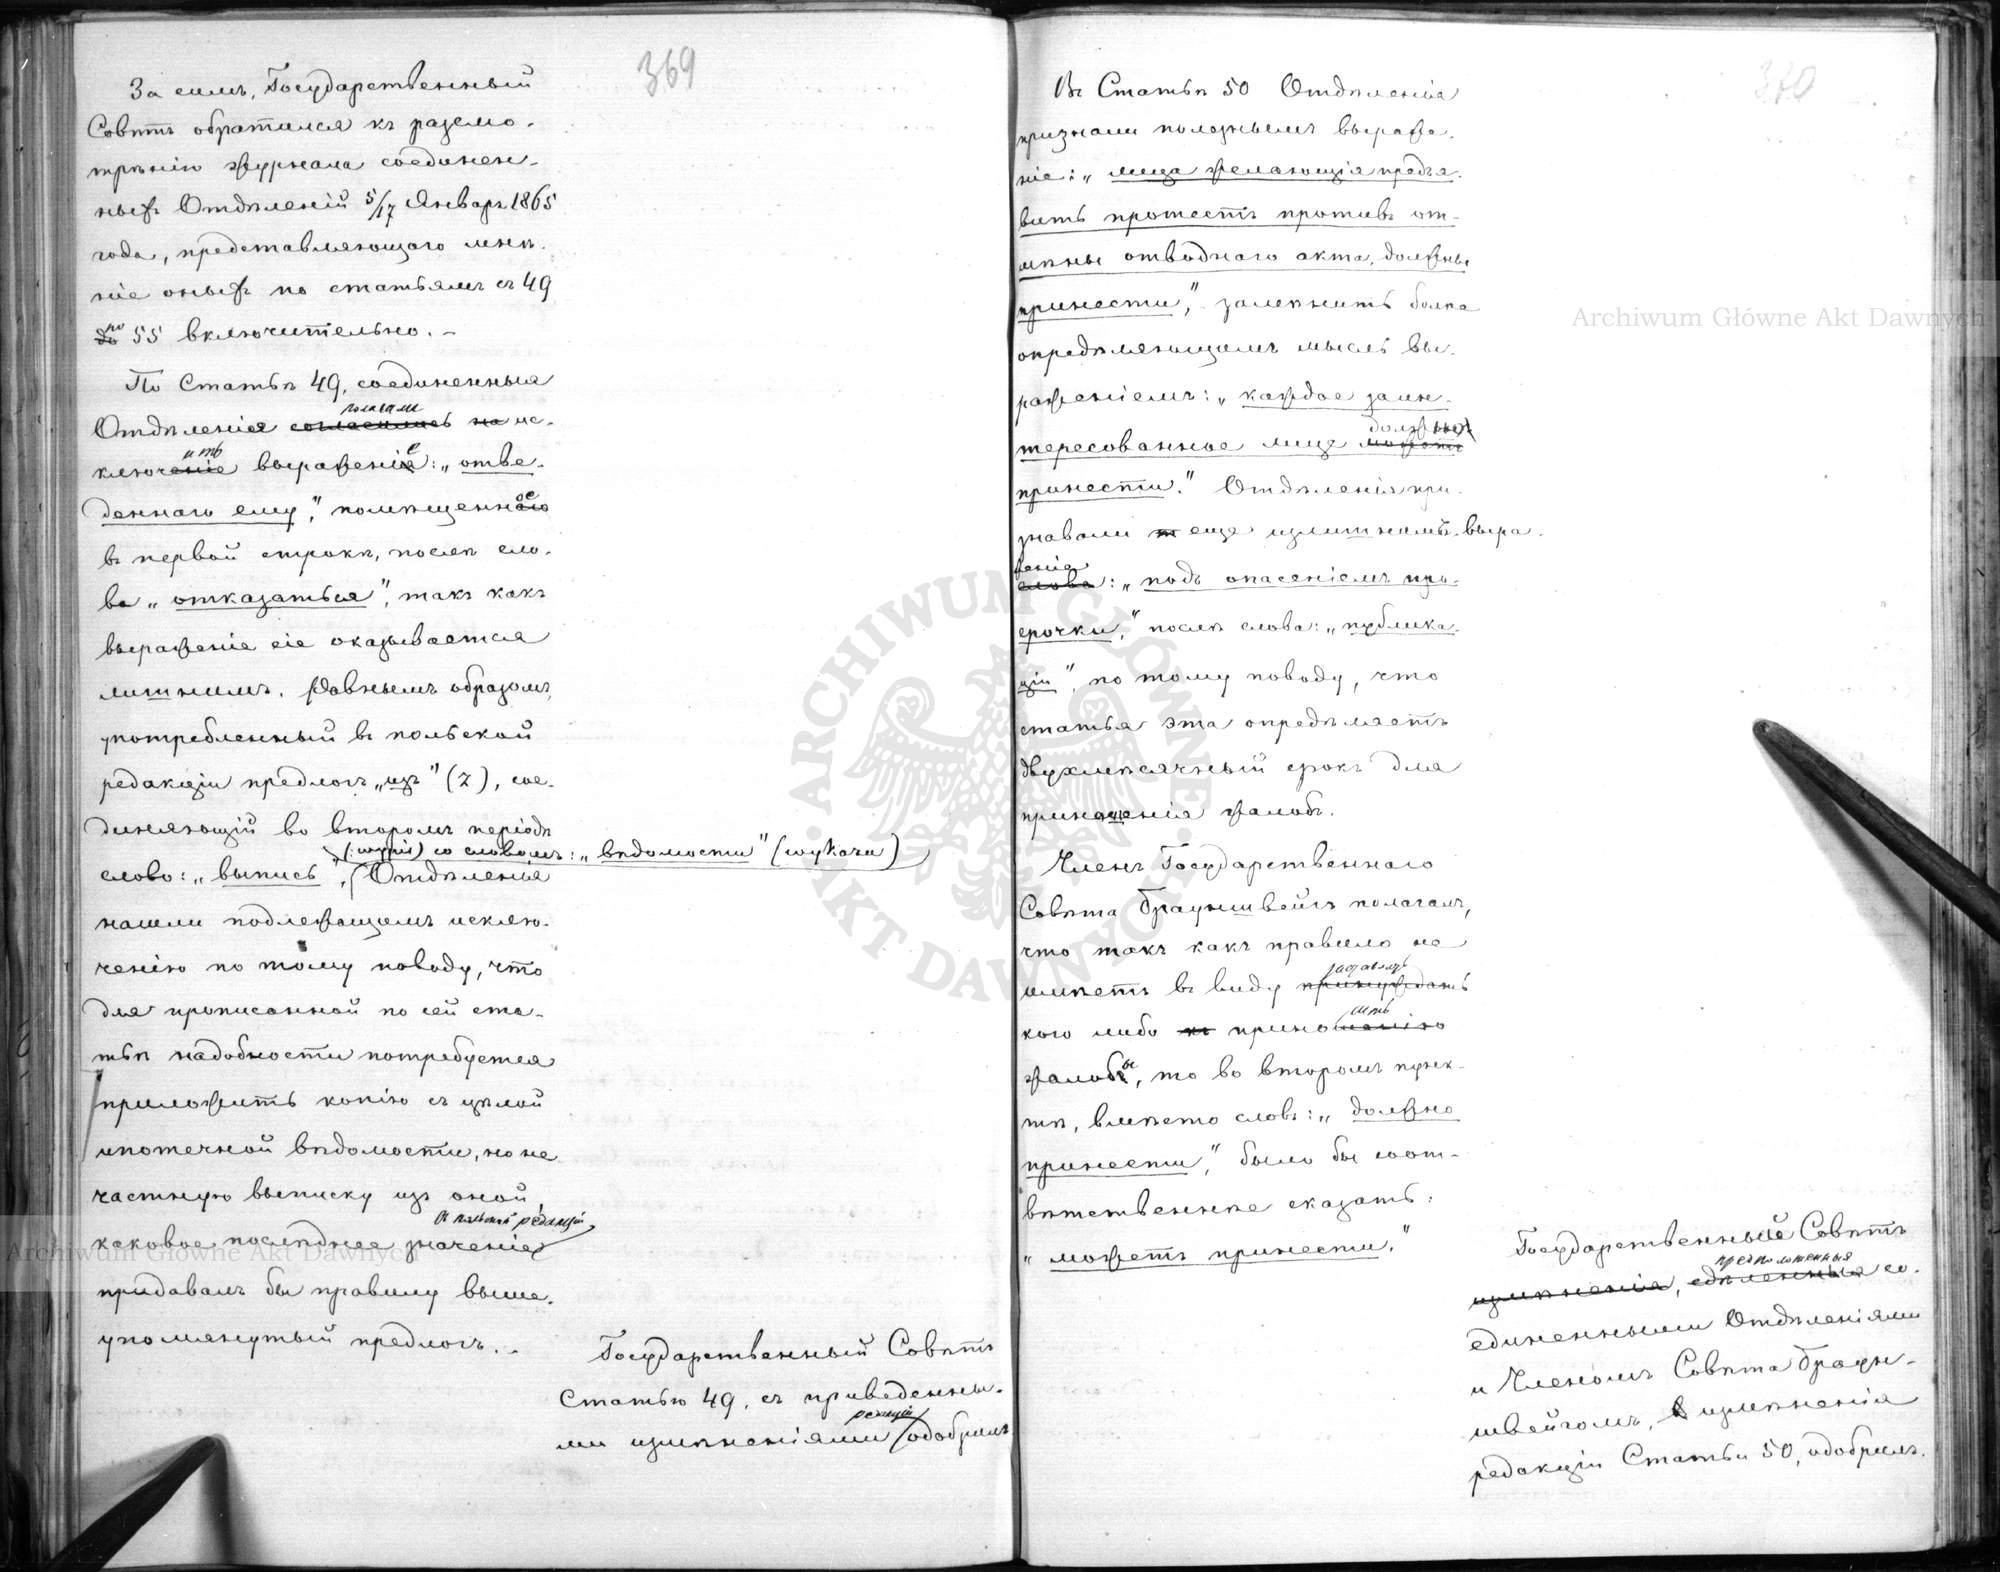 369
За симъ, Государственный
Совѣтъ обратился къ разсмо-
трѣнію журнала соединен-
ныхъ Отдѣленій 5/17 Января 1865
года, представляющаго мнѣ-
ніе оныхъ по статьямъ съ 49
до по 55 включительно. –
По Статьѣ 49, соединенныя
полагали
Отдѣленія согласились на ис-
ить
ключеніе выраженіе: „отве-
деннаго ему," помѣщенное
въ первой строкѣ, послѣ сло-
ва „отказаться", такъ какъ
выраженіе сіе оказывается
лишнимъ. Равнымъ образомъ,
употребленный въ польской
редакціи предлогъ „изъ" (z), сое-
диняющій во второмъ періодѣ
со словомъ: „вѣдомости" (wykazu)
слово: „выпись", Отдѣленія
нашли подлежащимъ исклю-
ченію по тому поводу, что
для прописанной по сей ста-
тьѣ надобности потребуется
приложить копію съ цѣлой
ипотечной вѣдомости, но не
частную выписку изъ оной,
въ польской редакціи
каковое послѣднее значеніе
придавалъ бы правилу выше-
упомянутый предлогъ. –
Государственный Совѣтъ
Статью 49, съ приведенны-
редакціи
ми измѣненіями одобрилъ.
370
Въ Статьѣ 50 Отдѣленія
признали полезнымъ выраже-
ніе: „лица желающія предъя-
вить протестъ противъ от-
мѣны отводнаго акта, должны
принести," замѣнить болѣе
опредѣляющимъ мысль вы-
раженіемъ: „каждое заин-
должно
тересованное лице можетъ
принести." Отдѣленія при-
знавали еще излишнимъ выра-
женія
слова: „подъ опасеніемъ про-
срочки," послѣ слова: „публика-
ціи", по тому поводу, что
статья эта опредѣляетъ
двухмѣсячный срокъ для
принесенія жалобъ.
Членъ Государственнаго
Совѣта Брауншвейгъ полагалъ,
что такъ какъ правило не
заставлять
имѣетъ въ виду принуждать
сить
кого либо къ приношенію
жалобы, то во второмъ пунк-
тѣ, вмѣсто словъ: „должно
принести," было бы соот-
вѣтственнѣе сказать:
„можетъ принести."
Государственный Совѣтъ
предположенныя
измѣненія, сдѣланныя со-
единенными Отдѣленіями
и Членомъ Совѣта Браун-
швейгомъ, измѣненія
редакціи Статьи 50, одобрилъ.
Archiwum Główne Akt Dawnych
Archiwum Główne Akt Dawnych
ARCHIWUM GŁÓWNE AKT DAWNYCH